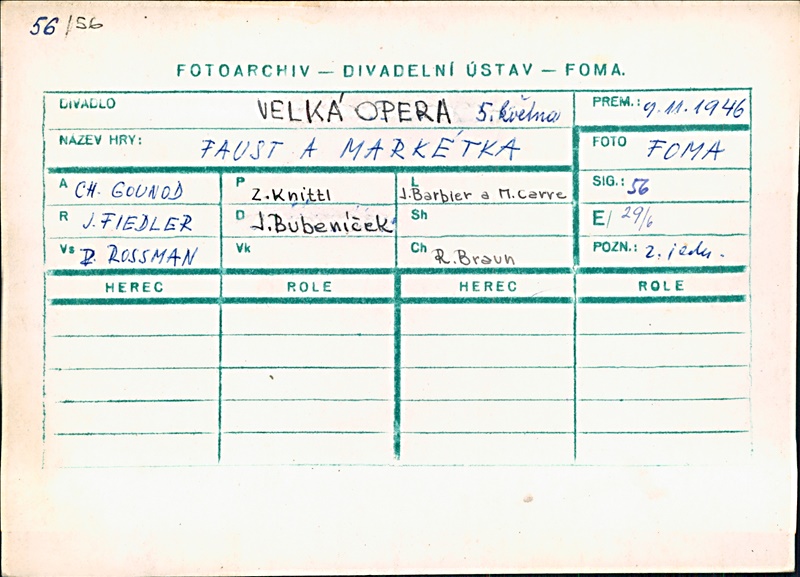 56/56
FOTOARCHIV — DIVADELNÍ ÚSTAV — FOMA.
DIVADLO VELKÁ OPERA 5. května PREM.: 9.11.1946
NÁZEV HRY: FAUST A MARKÉTKA FOTO FOMA
A CH. GOUNOD P Z. Knittl L J. Barbier a M. Carre SIG.: 56
R J. FIEDLER D J. Bubeníček Sh E/ 29/6
Vs Z. ROSSMAN Vk Ch R. Braun POZN.: 2. jedn.
HEREC ROLE HEREC ROLE